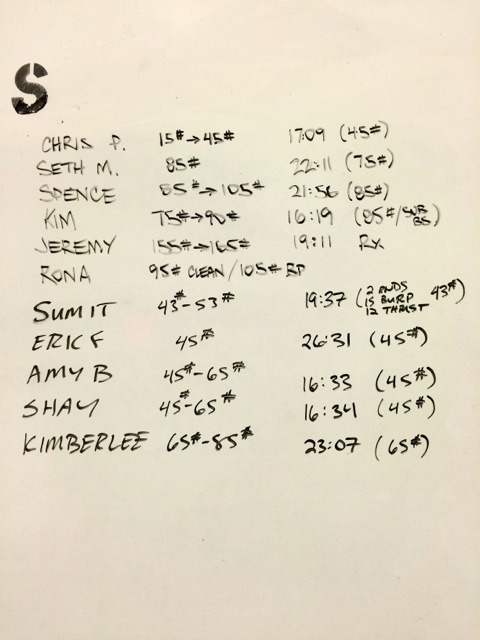 S
CHRIS P. 15#→45# 17:09 (45#)
SETH M. 85# 22:11 (75#)
SPENCE 85#→105# 21:56 (85#)
KIM 75#→90# 16:19 (85#/SUB BS)
JEREMY 155#→165# 19:11 RX
RONA 95# CLEAN/105# BP
SUMIT 43#-53# 19:37 (2 RNDS 15 BURP 12 THRUST 43#)
ERIC F 45# 26:31 (45#)
AMY B 45#-65# 16:33 (45#)
SHAY 45#-65# 16:34 (45#)
KIMBERLEE 65#-85# 23:07 (65#)